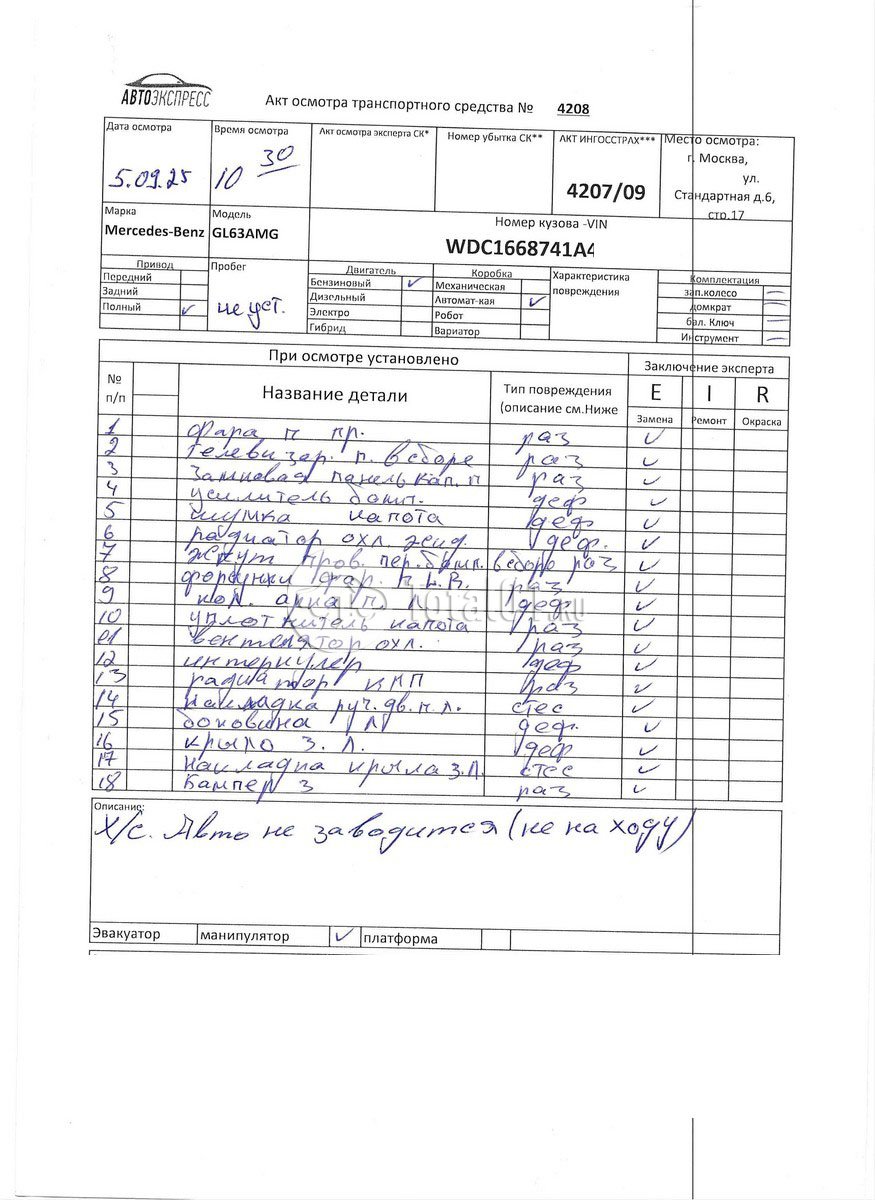 АВТОЭКСПРЕСС
Акт осмотра транспортного средства № 4208
Дата осмотра
5.09.25
Время осмотра
10 30
Акт осмотра эксперта СК*
Номер убытка СК**
АКТ ИНГОССТРАХ***
4207/09
Место осмотра:
г. Москва,
ул.
Стандартная д.6,
стр.17
Марка
Mercedes-Benz
Модель
GL63AMG
Номер кузова -VIN
WDC1668741A4
Привод
Передний
Задний
Полный ✓
Пробег
не уст.
Двигатель
Бензиновый ✓
Дизельный
Электро
Гибрид
Коробка
Механическая
Автомат-кая ✓
Робот
Вариатор
Характеристика
повреждения
Комплектация
зап.колесо —
домкрат —
бал. Ключ —
Инструмент —
При осмотре установлено
Заключение эксперта
№
п/п
Название детали
Тип повреждения
(описание см.Ниже
E I R
Замена Ремонт Окраска
1 Фара п пр. раз ✓
2 Телевизор. п. в сборе раз ✓
3 Замковая панель кап. п раз ✓
4 усилитель бамп. деф ✓
5 шумка капота деф ✓
6 радиатор охл жид. деф. ✓
7 жгут пров. пер. бамп. в сборе раз ✓
8 форсунки фар. п L.R. раз ✓
9 кол. арка п. л деф ✓
10 уплотнитель капота раз ✓
11 вентилятор охл. раз ✓
12 интеркулер деф ✓
13 радиатор КПП раз ✓
14 накладка руч. дв. п. л. стес ✓
15 боковина л деф. ✓
16 крыло з. л. деф ✓
17 накладка крыла з.л. стес ✓
18 Бампер з раз ✓
Total01.RU
Описание:
Х/с. Авто не заводится (не на ходу)
Эвакуатор манипулятор ✓ платформа